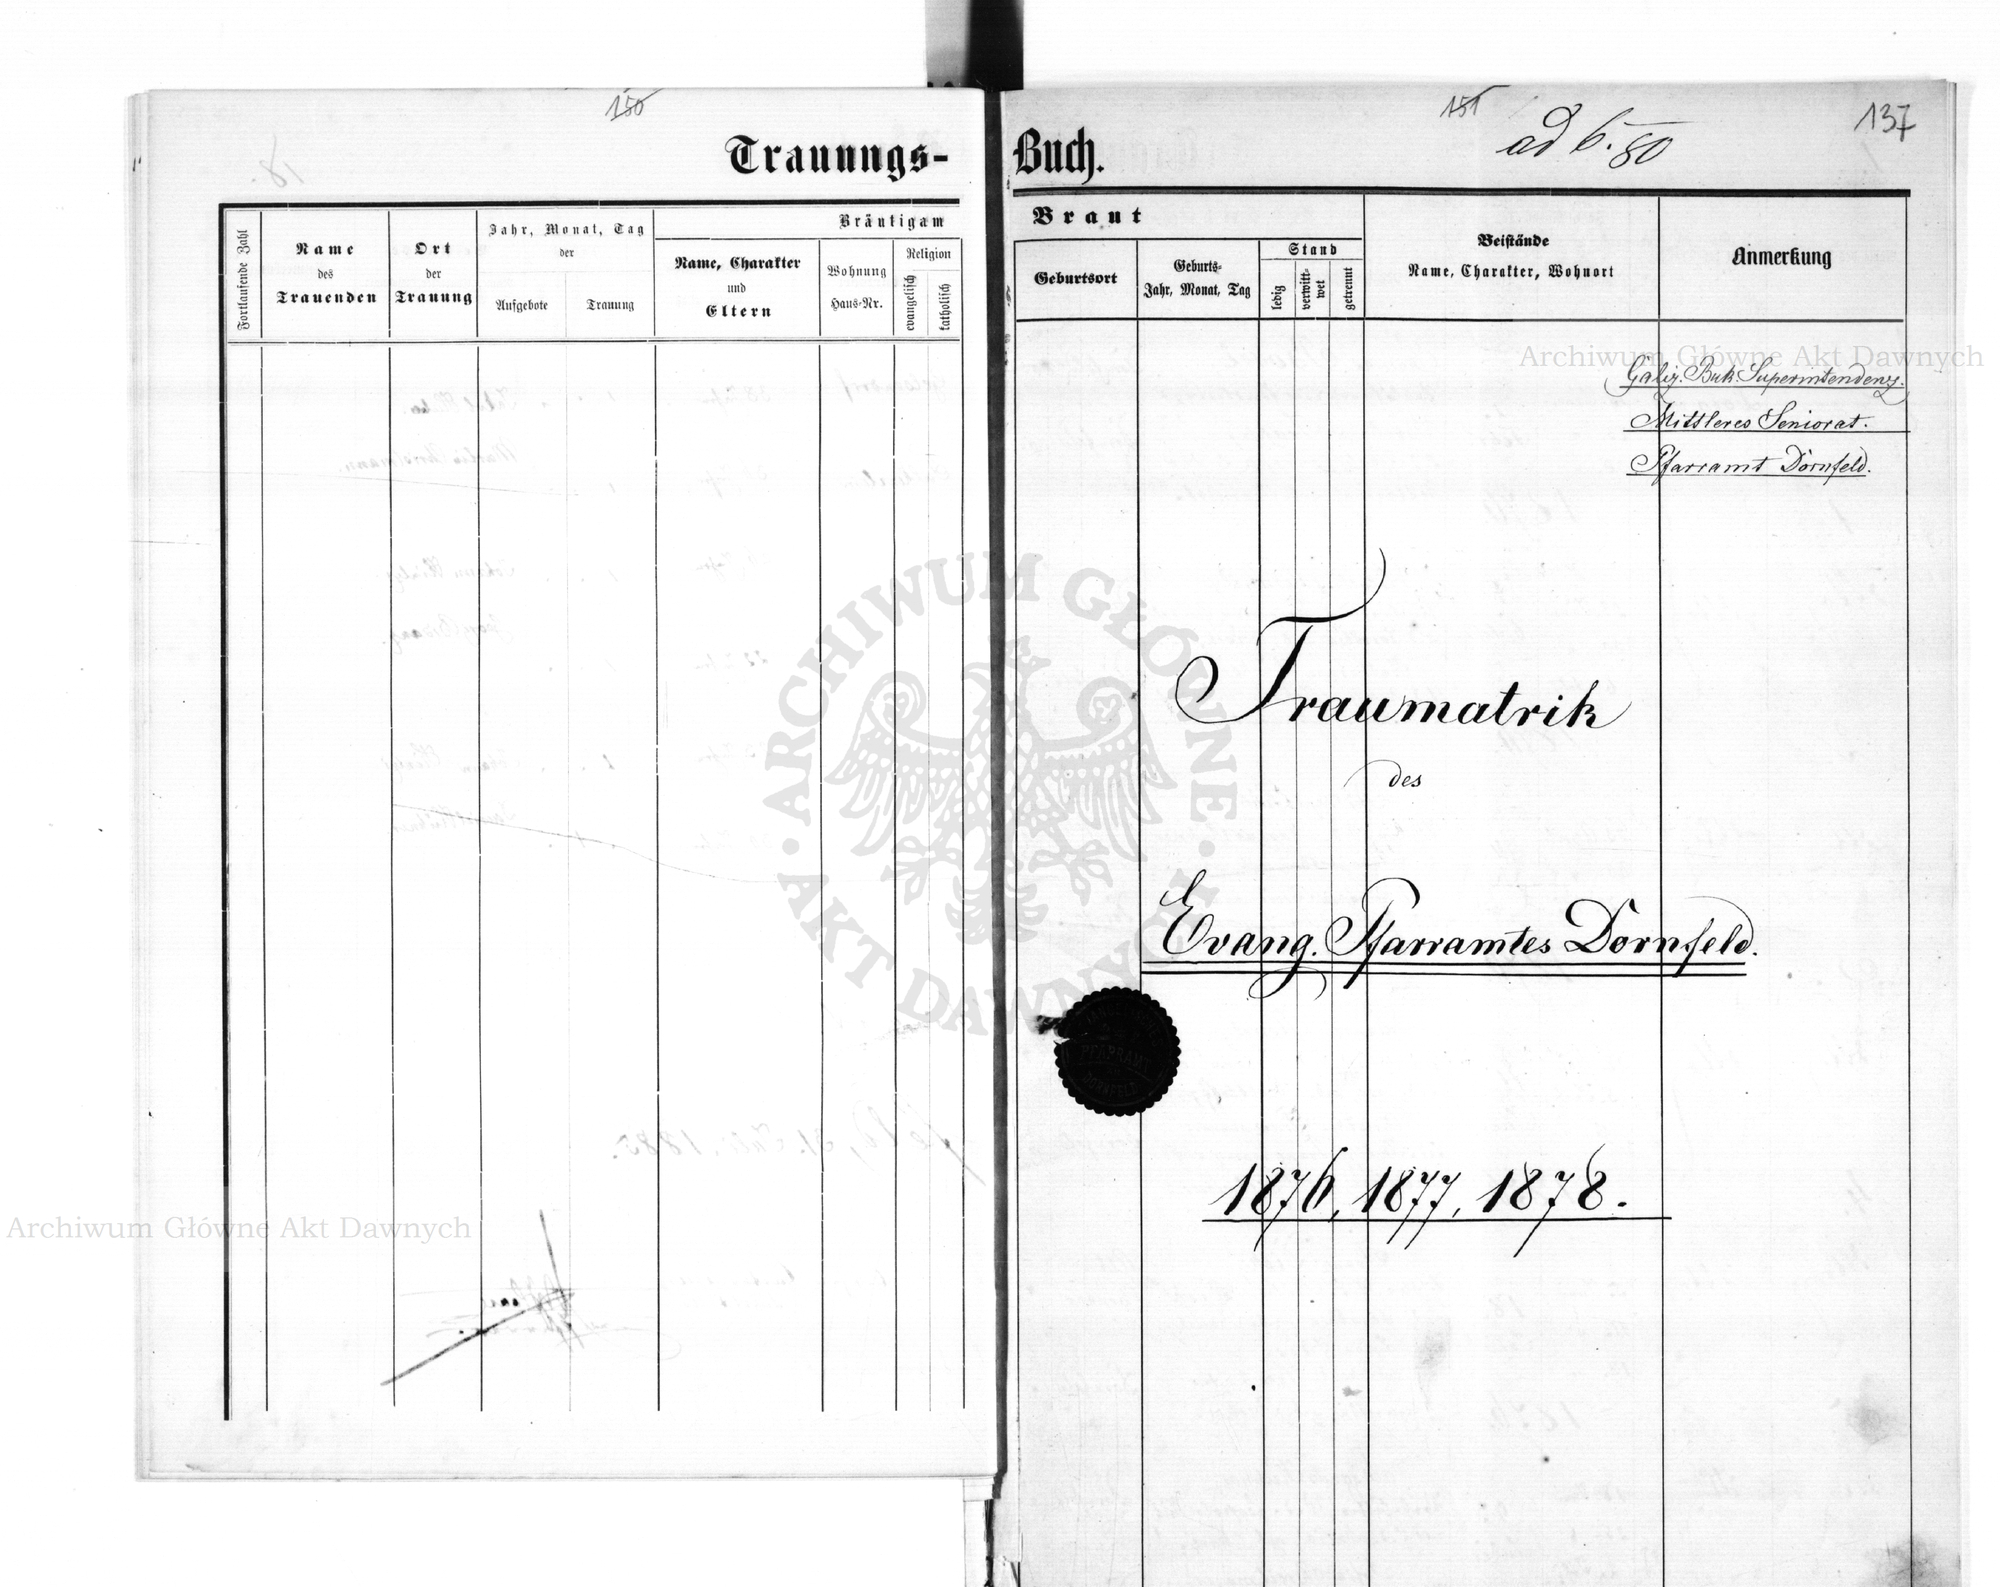 150
Trauungs-
Fortlaufende Zahl
Name
des
Trauenden
Ort
der
Trauung
Jahr, Monat, Tag
der
Aufgebote
Trauung
Bräutigam
Name, Charakter
und
Eltern
Wohnung
Haus-Nr.
Religion
evangelisch
katholisch
151
ad 6. 80
137
Buch.
Braut
Geburtsort
Geburts-
Jahr, Monat, Tag
Stand
ledig
verwitt-
wet
getrennt
Beistände
Name, Charakter, Wohnort
Anmerkung
Archiwum Główne Akt Dawnych
Galiz. Buk. Superintendenz.
Mittleres Seniorat.
Pfarramt Dornfeld.
Traumatrik
des
Evang. Pfarramtes Dornfeld.
PFARRAMT
DORNFELD
1876, 1877, 1878.
ARCHIWUM GŁÓWNE AKT DAWNYCH
Archiwum Główne Akt Dawnych